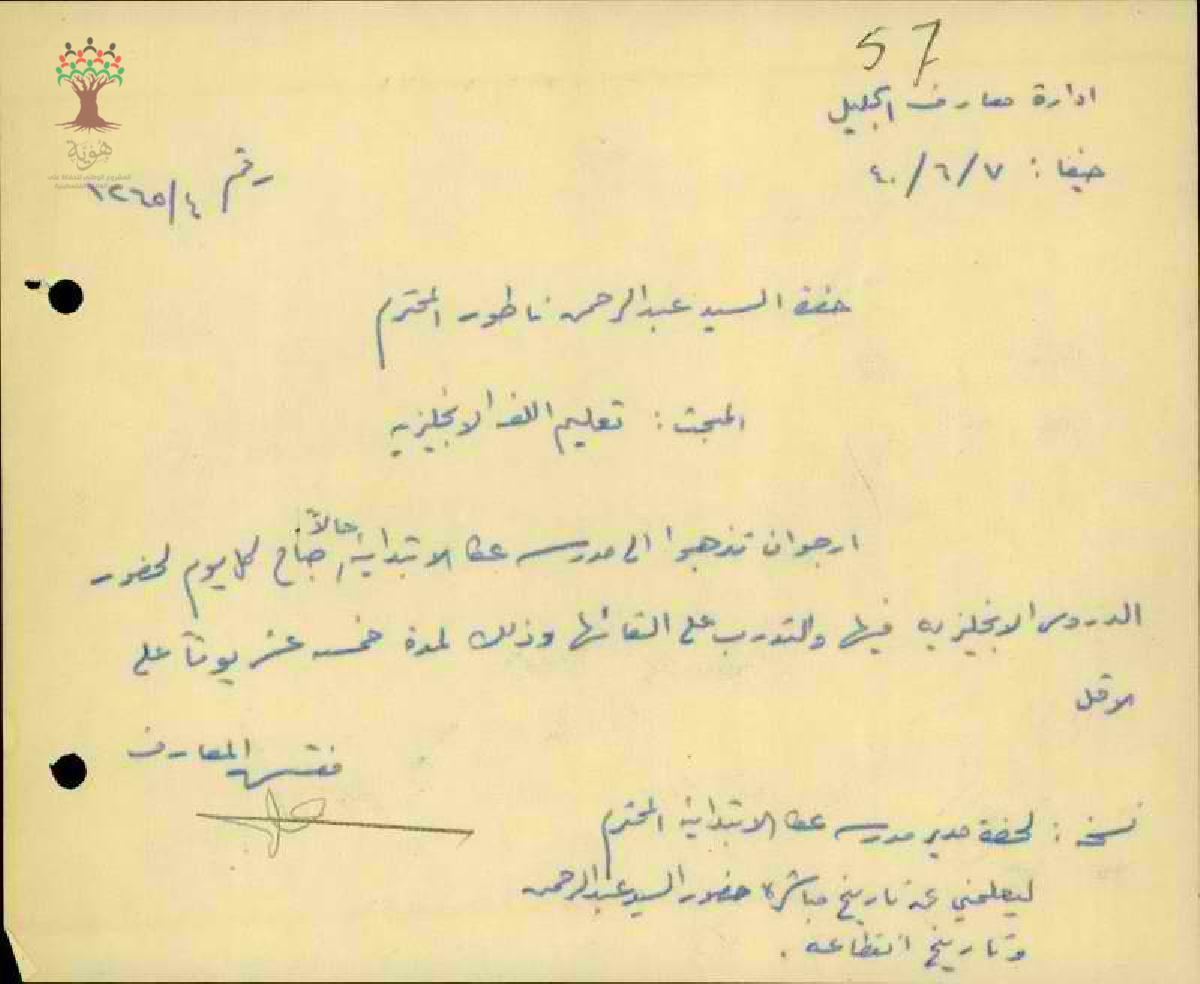 57
ادارة معارف الجليل
حيفا : ٧/٦/٤٠
رقم ١٢٦٥/٤
هُوِيَّة
حضرة السيد عبدالرحمن ناطور المحترم
المبحث : تعليم اللغه الانجليزيه
ارجو ان تذهبوا الى مدرسه عكا الابتدايه حالاً صباح كل يوم لحضور
الدروس الانجليزيه فيها والتدرب على القائها وذلك لمدة خمسه عشر يوماً على
الاقل
مفتش المعارف
نسخه : لحضرة مدير مدرسه عكا الابتدايه المحترم
ليعلمني عن تاريخ مباشرة حضور السيد عبدالرحمن
وتاريخ انقطاعه .